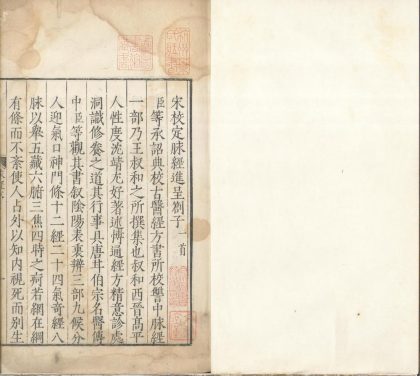 宋校定脉經進呈劄子一首
臣等承詔典校古醫經方書所校讐中脉經
一部乃王叔和之所撰集也叔和西晉高平
人性度沈靖尤好著述博通經方精意診處
洞識修養之道其行事具唐甘伯宗名醫傳
中臣等觀其書叙陰陽表裏辨三部九候分
人迎氣口神門條十二經二十四氣奇經八
脉以舉五藏六腑三焦四時之疴若網在綱
有條而不紊使人占外以知内視死而别生